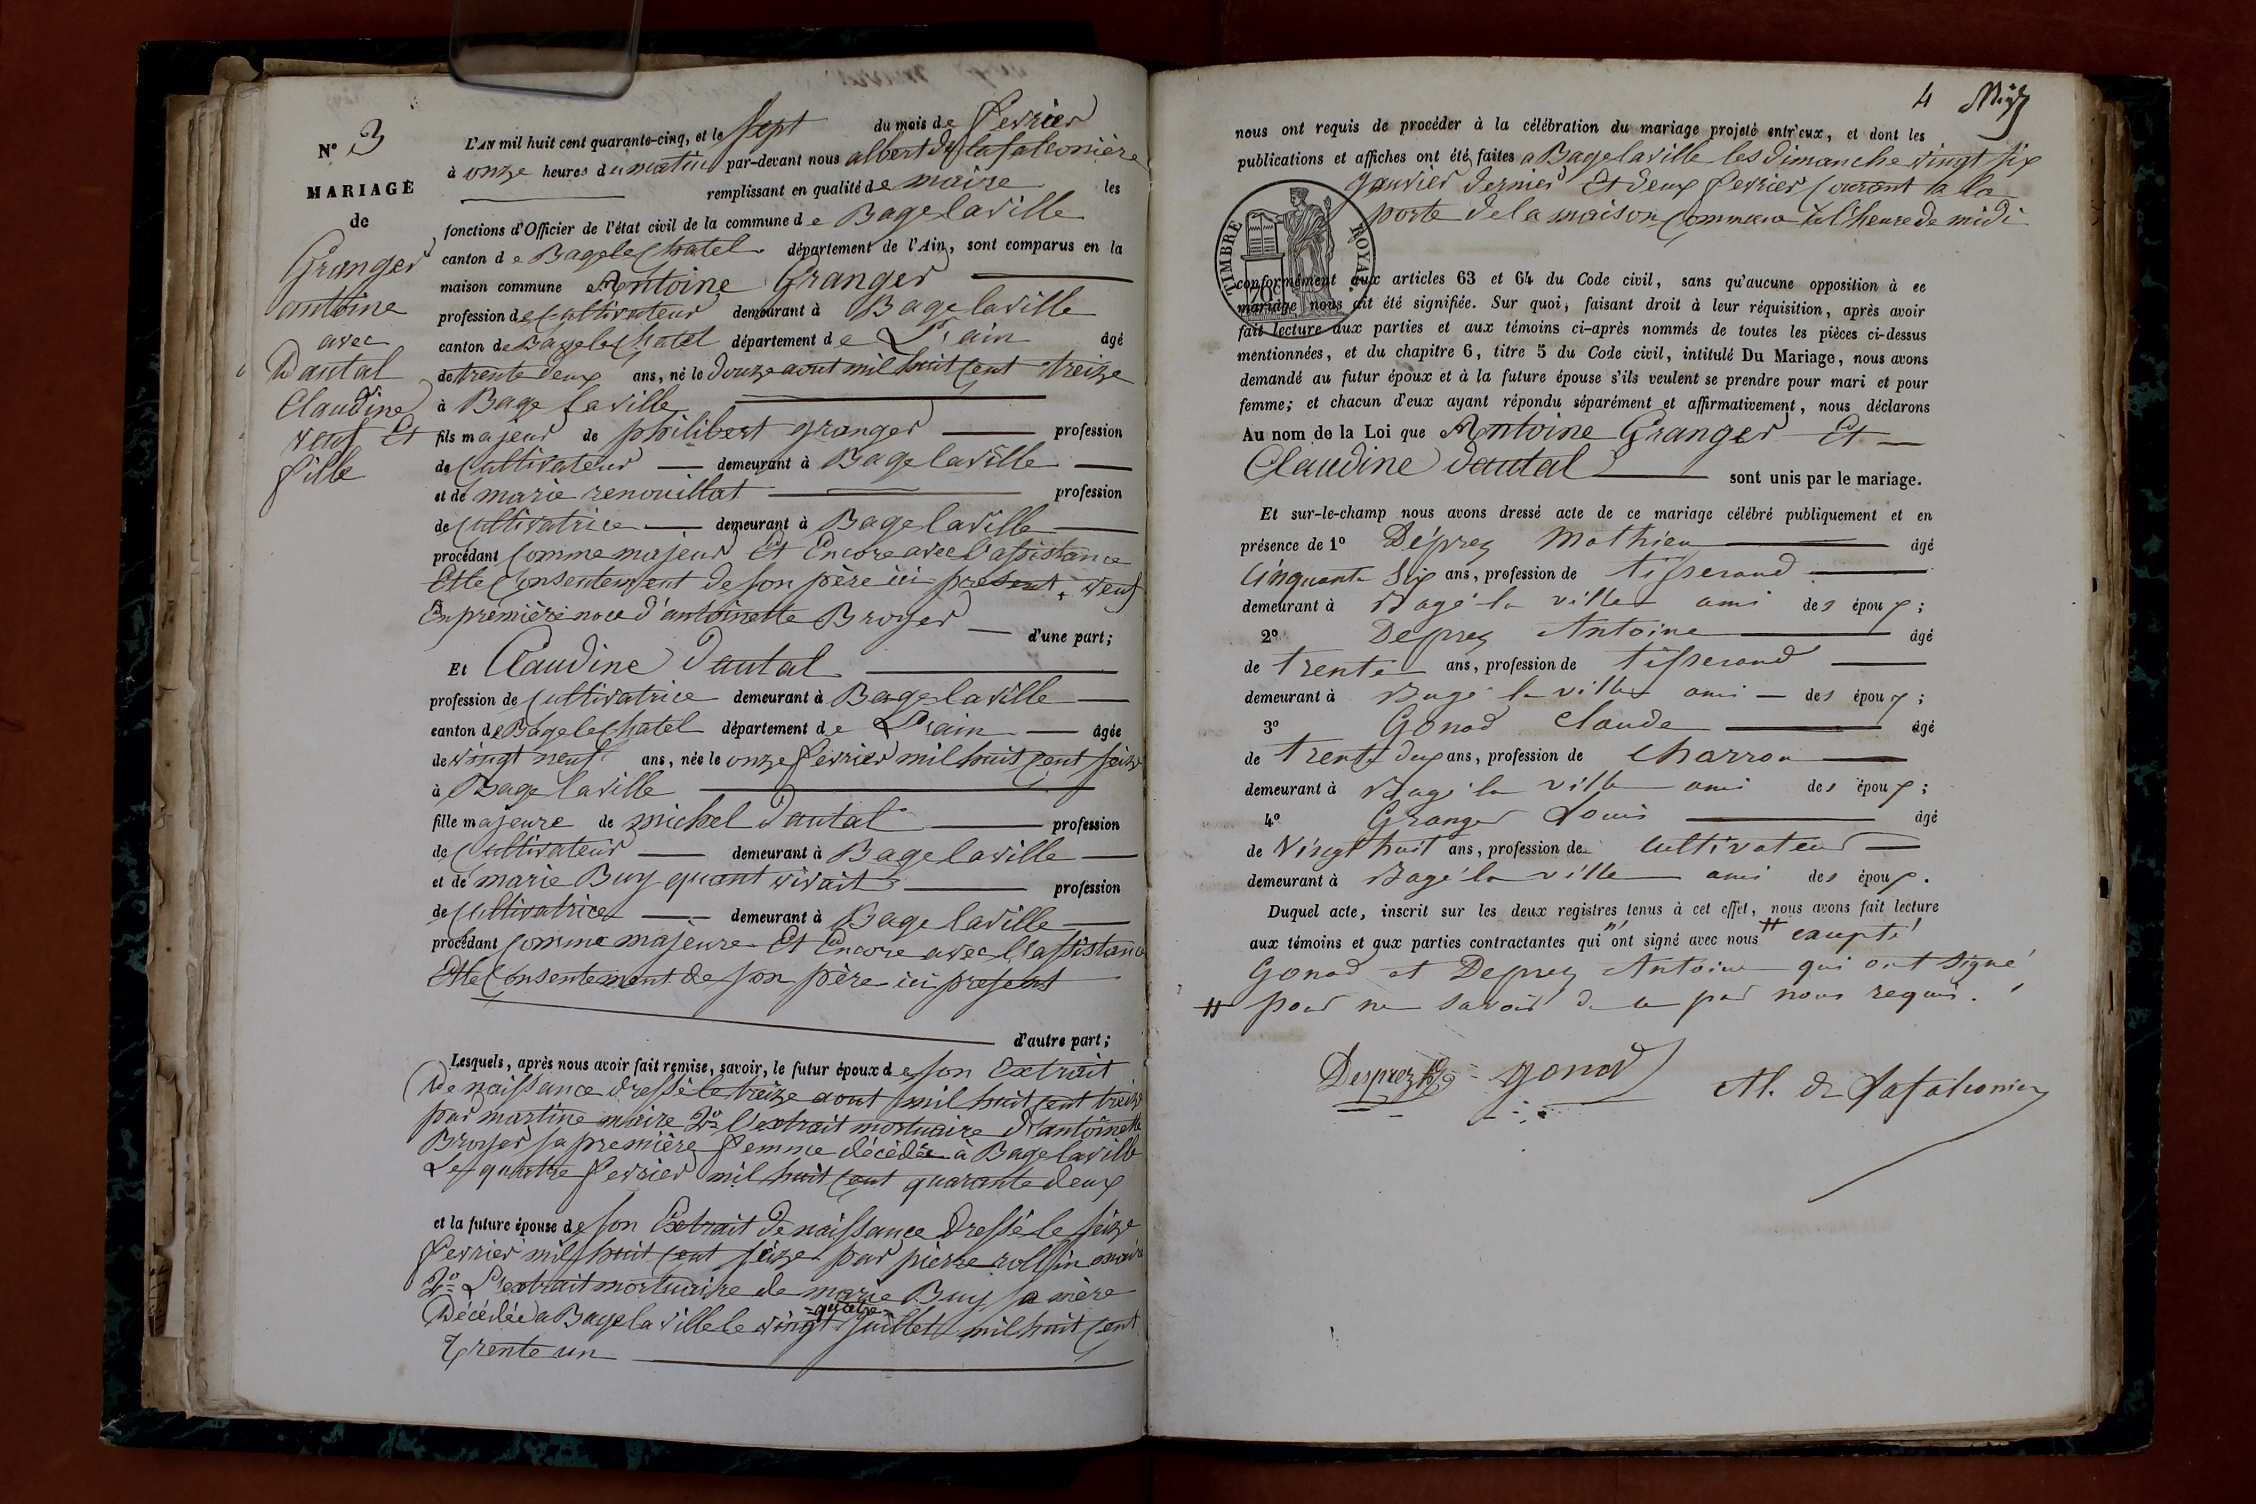 N° 3
MARIAGE
de
Granger
antoine
avec
Dautal
Claudine
veuf Et
fille
L'AN mil huit cent quarante-cinq, et le sept du mois de fevrier
à onze heures du matin par-devant nous albert de lafalconière
remplissant en qualité de maire les
fonctions d'Officier de l'état civil de la commune de Bagelaville
canton de Bagelechatel département de l'Ain, sont comparus en la
maison commune Antoine Granger
profession de Cultivateur demeurant à Bagelaville
canton de Bagelechatel département de L'ain âgé
de trente deux ans, né le douze aout mil huit cent treize
à Bage laville
fils majeur de philibert granger profession
de Cultivateur demeurant à Bagelaville
et de marie renouillat profession
de Cultivatrice demeurant à Bagelaville
procédant comme majeur Et Encore avec l'assistance
Et le Consentement de son père ici present, veuf
En première noce d'antoinette Broyer d'une part;
Et Claudine Dautal
profession de Cultivatrice demeurant à Bagelaville
canton de Bagelechatel département de L'ain âgée
de vingt neuf ans, née le onze fevrier mil huit cent seize
à Bage laville
fille majeure de michel Dautal profession
de Cultivateur demeurant à Bagelaville
et de marie Buy quant vivait profession
de Cultivatrice demeurant à Bagelaville
procédant comme majeure Et Encore avec l'assistance
Et le Consentement de son père ici present
d'autre part;
Lesquels, après nous avoir fait remise, savoir, le futur époux de son Extrait
De naissance dressé le treize aout mil huit cent treize
par martine maire 2° l'extrait mortuaire d'antoinette
Broyer sa première femme décédée à Bagelaville
Le quatre fevrier mil huit cent quarante deux
et la future épouse de son Extrait de naissance Dressé le seize
fevrier mil huit cent seize par pierre rollin maire
2° L'extrait mortuaire de marie Buy sa mère
=quatre=
Décédée a Bagelaville le vingt juillet mil huit cent
Trente un
4
nous ont requis de procéder à la célébration du mariage projeté entr'eux, et dont les
publications et affiches ont été faites a Bagelaville les dimanche vingt six
janvier dernier Et deux fevrier Courant a la
porte de la maison commune à l'heure de midi
TIMBRE ROYAL
conformément aux articles 63 et 64 du Code civil, sans qu'aucune opposition à ce
mariage nous ait été signifiée. Sur quoi, faisant droit à leur réquisition, après avoir
fait lecture aux parties et aux témoins ci-après nommés de toutes les pièces ci-dessus
mentionnées, et du chapitre 6, titre 5 du Code civil, intitulé Du Mariage, nous avons
demandé au futur époux et à la future épouse s'ils veulent se prendre pour mari et pour
femme; et chacun d'eux ayant répondu séparément et affirmativement, nous déclarons
Au nom de la Loi que Antoine Granger Et
Claudine Dautal sont unis par le mariage.
Et sur-le-champ nous avons dressé acte de ce mariage célébré publiquement et en
présence de 1° Déprez Mathieu âgé
Cinquante Six ans, profession de tisserand
demeurant à Bagé la ville ami des époux;
2° Deprez Antoine âgé
de trente ans, profession de tisserand
demeurant à Bagé la ville ami des époux;
3° Gonod Claude âgé
de trente deux ans, profession de Charron
demeurant à Bagé la ville ami des époux;
4° Granger Louis âgé
de Vingt huit ans, profession de Cultivateur
demeurant à Bagé la ville ami des époux.
Duquel acte, inscrit sur les deux registres tenus à cet effet, nous avons fait lecture
aux témoins et aux parties contractantes qui n'ont signé avec nous # excepté
Gonod et Deprez Antoine qui ont signé
# pour ne savoir de ce par nous requis.
Desprez Gonod Al. de Lafalconière